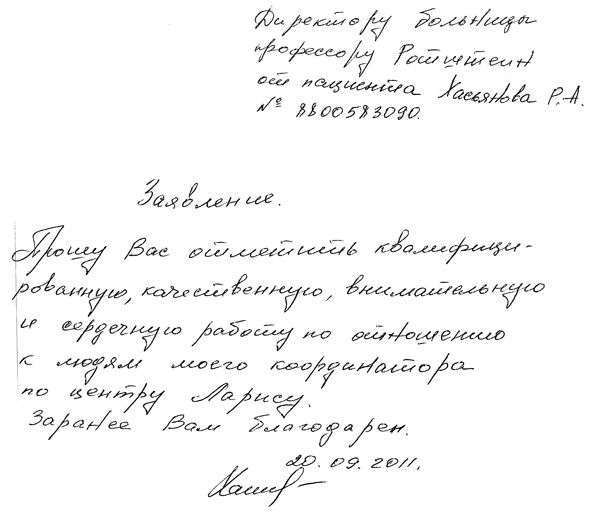 Директору больницы
профессору Ротштеин
от пациента Хасьянова Р.А.
№ 8800583090.
Заявление.
Прошу Вас отметить квалифици-
рованную, качественную, внимательную
и сердечную работу по отношению
к людям моего координатора
по центру Ларису.
Заранее Вам благодарен.
20.09.2011.